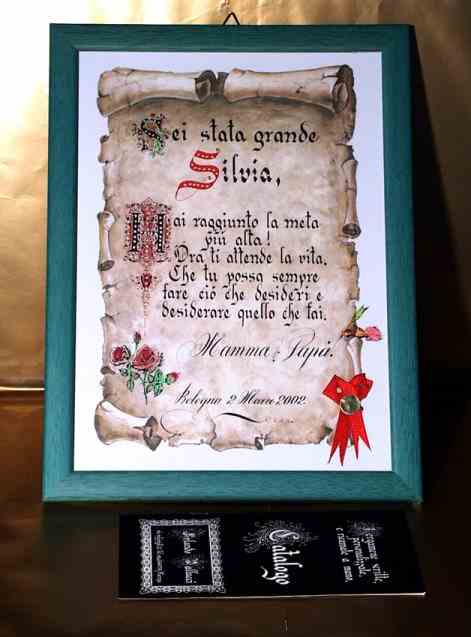 Sei stata grande
Silvia,
Hai raggiunto la meta
più alta!
Ora ti attende la vita.
Che tu possa sempre
fare ciò che desideri e
desiderare quello che fai.
Mamma e Papà.
Bologna 2 Marzo 2002.
Catalogo
Pergamene scritte
personalizzate
e ricamate a mano